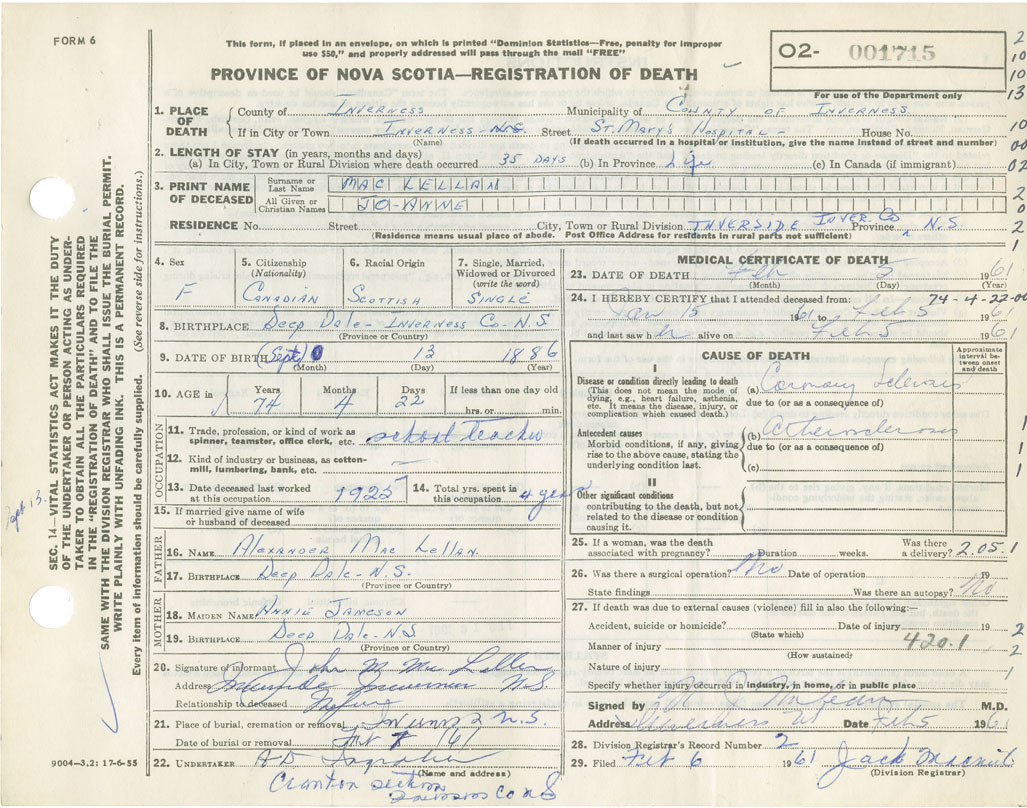 FORM 6
This form, if placed in an envelope, on which is printed "Dominion Statistics—Free, penalty for improper
use $50," and properly addressed will pass through the mail "FREE"
PROVINCE OF NOVA SCOTIA—REGISTRATION OF DEATH
O2- 001715
For use of the Department only
2
10
10
13
10
00
02
2
0
2
1
1. PLACE OF DEATH
County of Inverness Municipality of County of Inverness
If in City or Town Inverness-N.S. Street St. Mary's Hospital - House No.
(Name) (If death occurred in a hospital or institution, give the name instead of street and number)
2. LENGTH OF STAY (in years, months and days)
(a) In City, Town or Rural Division where death occurred 35 days (b) In Province Life (c) In Canada (if immigrant)
3. PRINT NAME OF DECEASED
Surname or Last Name MAC LELLAN
All Given or Christian Names JO-ANNE
RESIDENCE No. Street City, Town or Rural Division Inverside Inver. Co Province N.S.
(Residence means usual place of abode. Post Office Address for residents in rural parts not sufficient)
4. Sex F
5. Citizenship (Nationality) Canadian
6. Racial Origin Scottish
7. Single, Married, Widowed or Divorced (write the word) Single
8. BIRTHPLACE Deep Dale-Inverness Co-N.S.
(Province or Country)
9. DATE OF BIRTH (Sept) 13 1886
(Month) (Day) (Year)
10. AGE in Years 74 Months 4 Days 22 If less than one day old hrs. or min.
OCCUPATION
11. Trade, profession, or kind of work as spinner, teamster, office clerk, etc. school teacher
12. Kind of industry or business, as cotton-mill, lumbering, bank, etc. —
13. Date deceased last worked at this occupation 1925
14. Total yrs. spent in this occupation 4 years
15. If married give name of wife or husband of deceased
FATHER
16. NAME Alexander Mac Lellan.
17. BIRTHPLACE Deep Dale-N.S.
(Province or Country)
MOTHER
18. MAIDEN NAME Annie Jameson
19. BIRTHPLACE Deep Dale-NS
(Province or Country)
20. Signature of informant John M Mc Lellan
Address Inverness N.S.
Relationship to deceased
21. Place of burial, cremation or removal N.S.
Date of burial or removal Feb 61
22. UNDERTAKER A D
(Name and address)
MEDICAL CERTIFICATE OF DEATH
23. DATE OF DEATH Feb 5 1961
(Month) (Day) (Year)
74-4-22-00
24. I HEREBY CERTIFY that I attended deceased from:
Jan 15 1961 to Feb 5 1961
and last saw h alive on Feb 5 1961
CAUSE OF DEATH
Approximate interval between onset and death
I
Disease or condition directly leading to death
(This does not mean the mode of dying, e.g., heart failure, asthenia, etc. It means the disease, injury, or complication which caused death.)
(a) Coronary Sclerosis
due to (or as a consequence of)
Antecedent causes
Morbid conditions, if any, giving rise to the above cause, stating the underlying condition last.
(b) Atherosclerosis
due to (or as a consequence of)
(c)
1
1
1
II
Other significant conditions
contributing to the death, but not related to the disease or condition causing it.
25. If a woman, was the death associated with pregnancy? Duration weeks. Was there a delivery? 2.05.1
26. Was there a surgical operation? No Date of operation 19
State findings Was there an autopsy? No
27. If death was due to external causes (violence) fill in also the following:—
Accident, suicide or homicide? Date of injury 19 2
(State which)
Manner of injury 420.1 2
(How sustained)
Nature of injury 1
Specify whether injury occurred in industry, in home, or in public place
Signed by M.D.
Address Date Feb 5 1961
28. Division Registrar's Record Number 2
29. Filed Feb 6 1961 Jack
(Division Registrar)
9004—3.2: 17-6-55
SEC. 14—VITAL STATISTICS ACT MAKES IT THE DUTY
OF THE UNDERTAKER OR PERSON ACTING AS UNDER-
TAKER TO OBTAIN ALL THE PARTICULARS REQUIRED
IN THE "REGISTRATION OF DEATH" AND TO FILE THE
SAME WITH THE DIVISION REGISTRAR WHO SHALL ISSUE THE BURIAL PERMIT.
WRITE PLAINLY WITH UNFADING INK. THIS IS A PERMANENT RECORD.
Every item of information should be carefully supplied. (See reverse side for instructions.)
Sept 13.